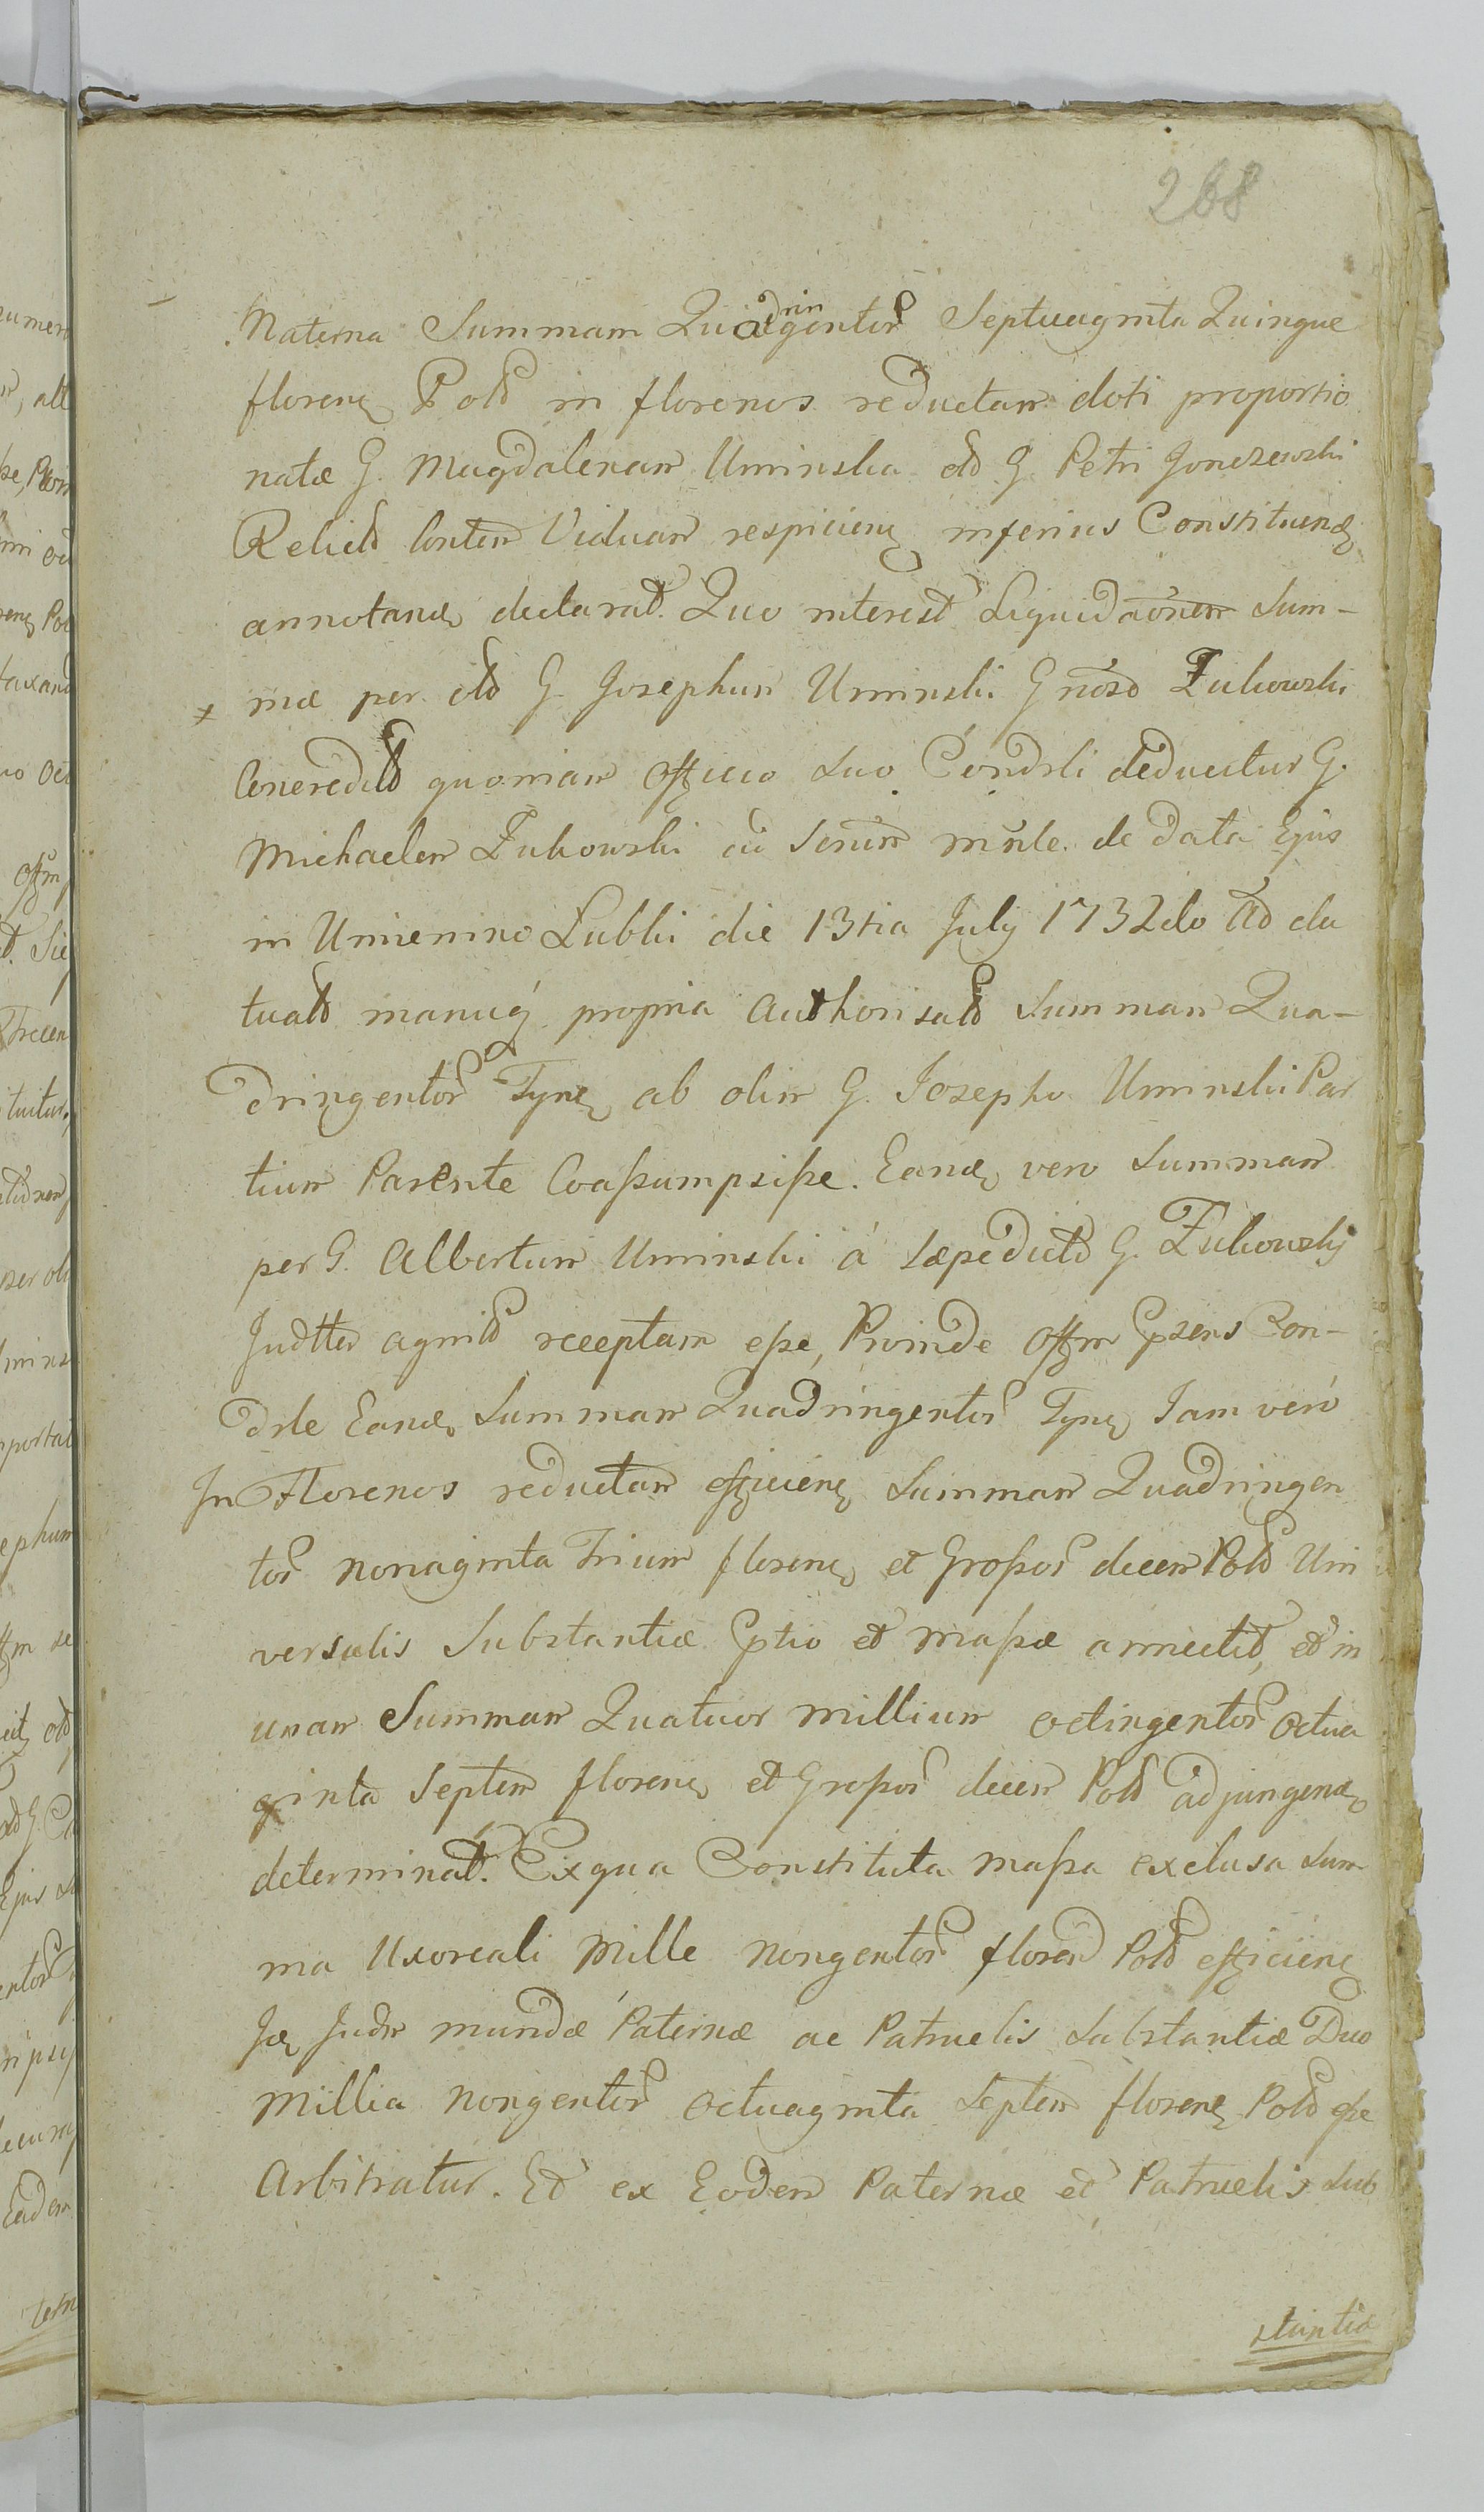 268
Materna Summam Quadringentor Septuaginta Quinque
floren Pold in florenos reductam doti proportio
natæ G. Magdalenam Uminska old G. Petri Jonczewski
Relict Conten Viduam respicien inferius Constituend
annotand declarat. Quo interest Liquidaonem Sum-
mæ per old G. Josephum Uminski Gnoso Zukowski
Concredit quoniam officio suo Condrli deducitur G.
Michaelem Zukowski cū Serūm mnle. de data Ejus
in Umienino Lubki die 13tia July 1732do Ad da
tuatd manuq propria Authorisatd Summam Qua-
dringentor Tyne ab olim G. Josepho Uminski Par
tium Parente Coaßumpsiße. Eand vero Summam
per G. Albertum Uminski á sæpedictd G. Zukowskj
Judtter agnitd receptam eße, Proinde offm Ppsens Con-
drle Eand Summam Quadringentor Tyne Jam veró
In Florenos reductam efficien Summam Quadringen
tor nonaginta Trium floren et Großor decem Pold Uni
versalis Substantiæ Pptio et maßæ annectit, et in
unam Summam Quatuor millium octingentor octua
ginta Septem floren et Großor decem Pold adjungend
determinat. Ex qua Constituta maßa exclusa Sum
ma Uxoreali Mille nongentor floren Pold efficien
Judm mundæ Paternæ ac Patruelis Substantiæ Duo
Millia nongentor octuaginta Septem floren Pold eße
Arbitratur. Et ex Eodem Paternæ et Patruelis Sub
stantiæ